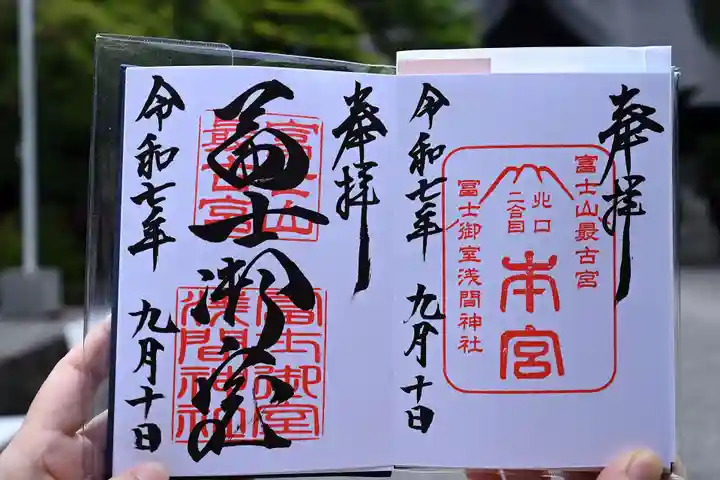 奉拝
富士山最古宮
北口
二合目
本宮
冨士御室浅間神社
令和七年 九月十日
奉拝
富士山
最古宮
冨士御室
冨士御室
浅間神社
令和七年 九月十日